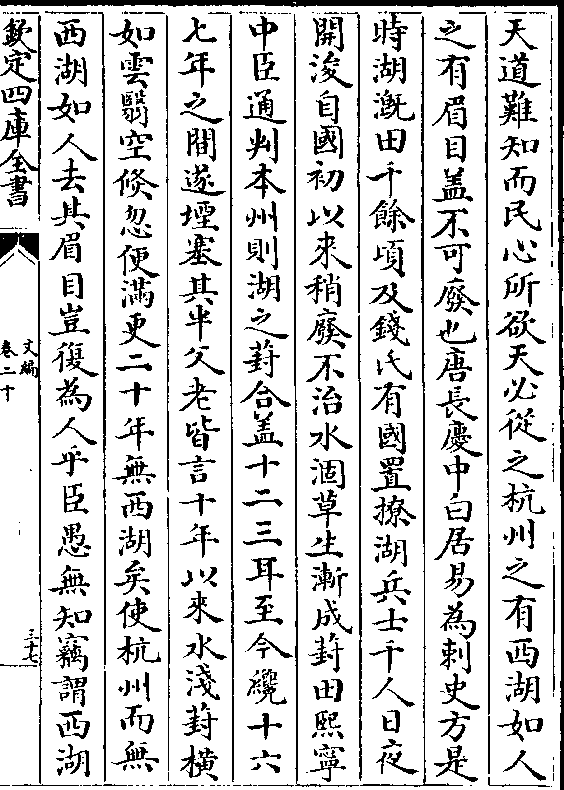 天道難知而民心所欲天必從之杭州之有西湖如人
之有眉目盖不可廢也唐長慶中白居易為刺史方是
時湖溉田千餘頃及錢氏有國置撩湖兵士千人日夜
開浚自國初以來稍廢不治水涸草生漸成葑田熙寧
中臣通判本州則湖之葑合盖十二三耳至今纔十六
七年之間遂堙塞其半父老皆言十年以來水淺葑横
如雲翳空倐忽便滿更二十年無西湖矣使杭州而無
西湖如人去其眉目豈復為人乎臣愚無知竊謂西湖
欽定四庫全書
文編
卷二十
三十七